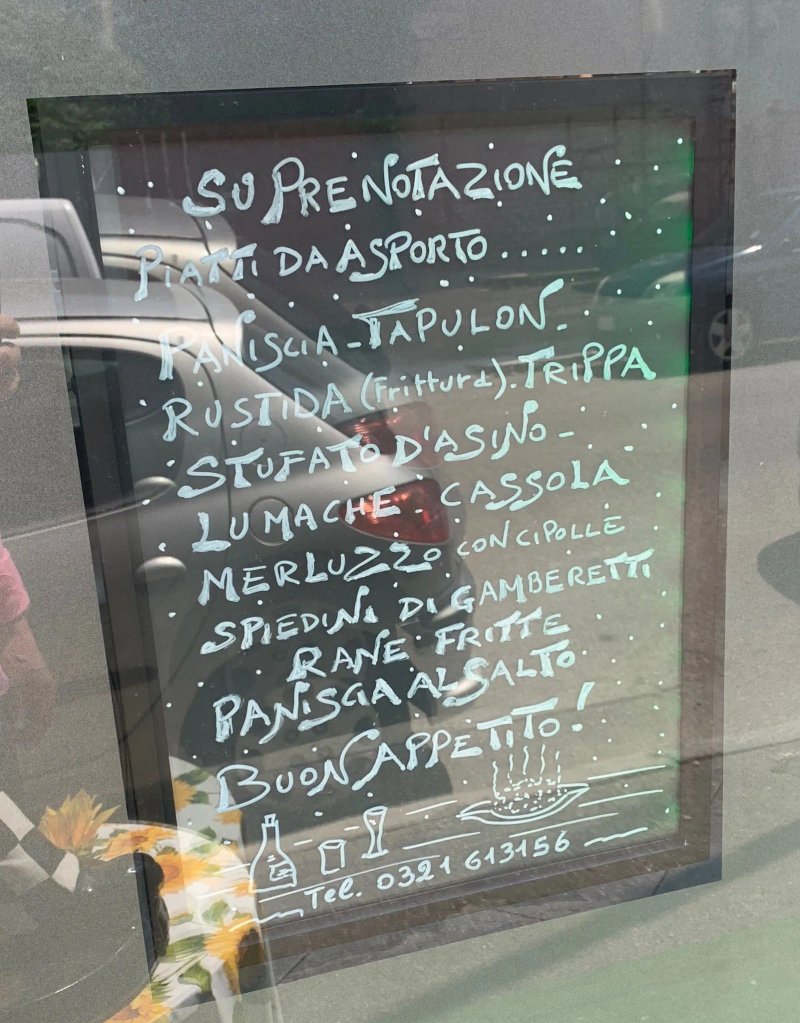 SU PRENOTAZIONE
PIATTI DA ASPORTO .....
PANISCIA - TAPULON -
RUSTIDA (Frittura). TRIPPA
STUFATO D'ASINO -
LUMACHE - CASSOLA
MERLUZZO CON CIPOLLE
SPIEDINI DI GAMBERETTI
RANE FRITTE
PANISCIA AL SALTO
BUON APPETITO!
Tel. 0321 613156